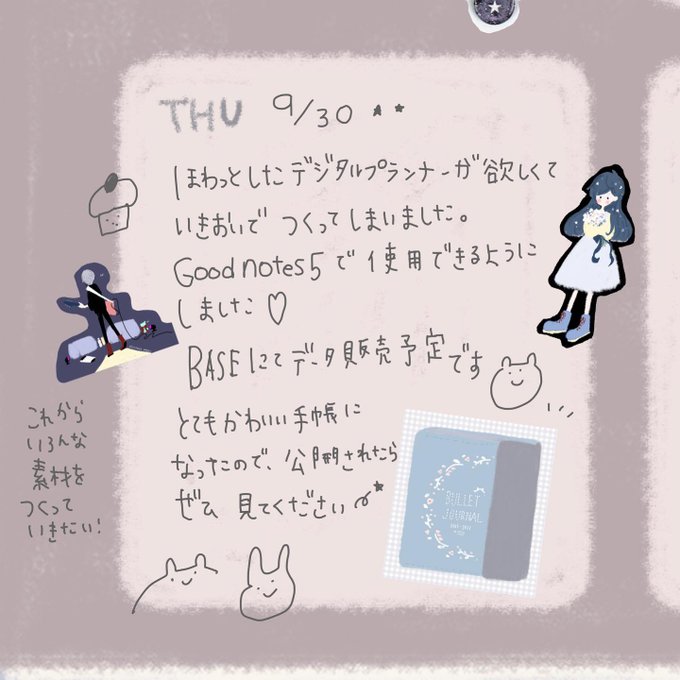 THU 9/30
ほわっとしたデジタルプランナーが欲しくて
いきおいで つくってしまいました。
Goodnotes5で使用できるように
しました♡
BASEにてデータ販売予定です
とてもかわいい手帳に
なったので、公開されたら
ぜひ 見てください
これから
いろんな
素材を
つくって
いきたい!
BULLET
JOURNAL